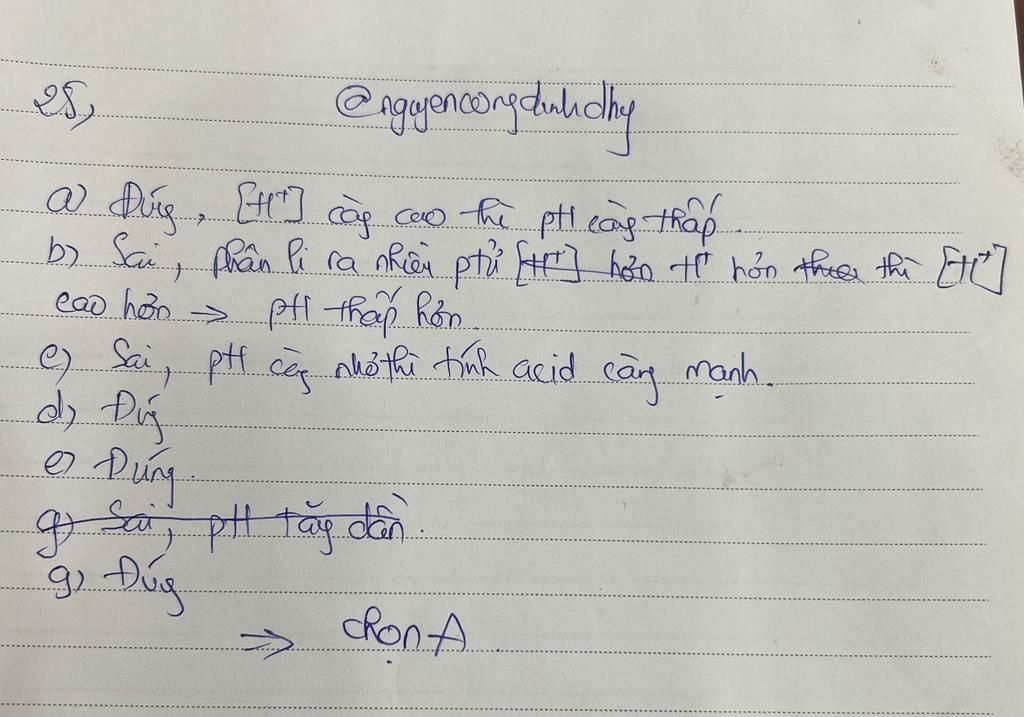 25,
@nguyencongdinhdhy
a) Đúng, [H⁺] càng cao thì pH càng thấp.
b) Sai, phân li ra nhiều ptử [H⁺] hơn H⁺ hơn thì [H⁺]
cao hơn → pH thấp hơn.
c) Sai, pH càng nhỏ thì tính acid càng mạnh.
d) Đúng
e) Đúng.
g) Sai, pH tăng dần.
g) Đúng
⇒ chọn A